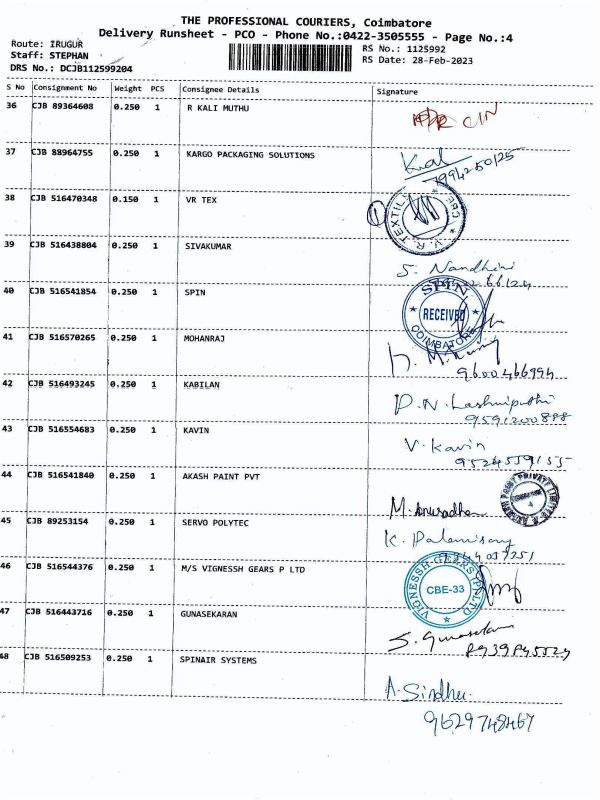 THE PROFESSIONAL COURIERS, Coimbatore
Delivery Runsheet - PCO - Phone No.:0422-3505555 - Page No.:4
Route: IRUGUR
Staff: STEPHAN
DRS No.: DCJB112599204
RS No.: 1125992
RS Date: 28-Feb-2023
S No Consignment No Weight PCS Consignee Details Signature
36 CJB 89364608 0.250 1 R KALI MUTHU
37 CJB 88964755 0.250 1 KARGO PACKAGING SOLUTIONS
38 CJB 516470348 0.150 1 VR TEX
V.R. TEXTILE
39 CJB 516438804 0.250 1 SIVAKUMAR
S. Nandhini
40 CJB 516541854 0.250 1 SPIN
SPIN
RECEIVED
COIMBATORE
41 CJB 516570265 0.250 1 MOHANRAJ
9600466994
42 CJB 516493245 0.250 1 KABILAN
P.N. Lashnipathi
9591200888
43 CJB 516554683 0.250 1 KAVIN
V. Kavin
9524559155
44 CJB 516541840 0.250 1 AKASH PAINT PVT
M. Anuradha
45 CJB 89253154 0.250 1 SERVO POLYTEC
K. Palanisamy
46 CJB 516544376 0.250 1 M/S VIGNESSH GEARS P LTD
VIGNESSH GEARS (P) LTD
CBE-33
47 CJB 516443716 0.250 1 GUNASEKARAN
S. Gunasekaran
48 CJB 516509253 0.250 1 SPINAIR SYSTEMS
A. Sindhu
9629748467